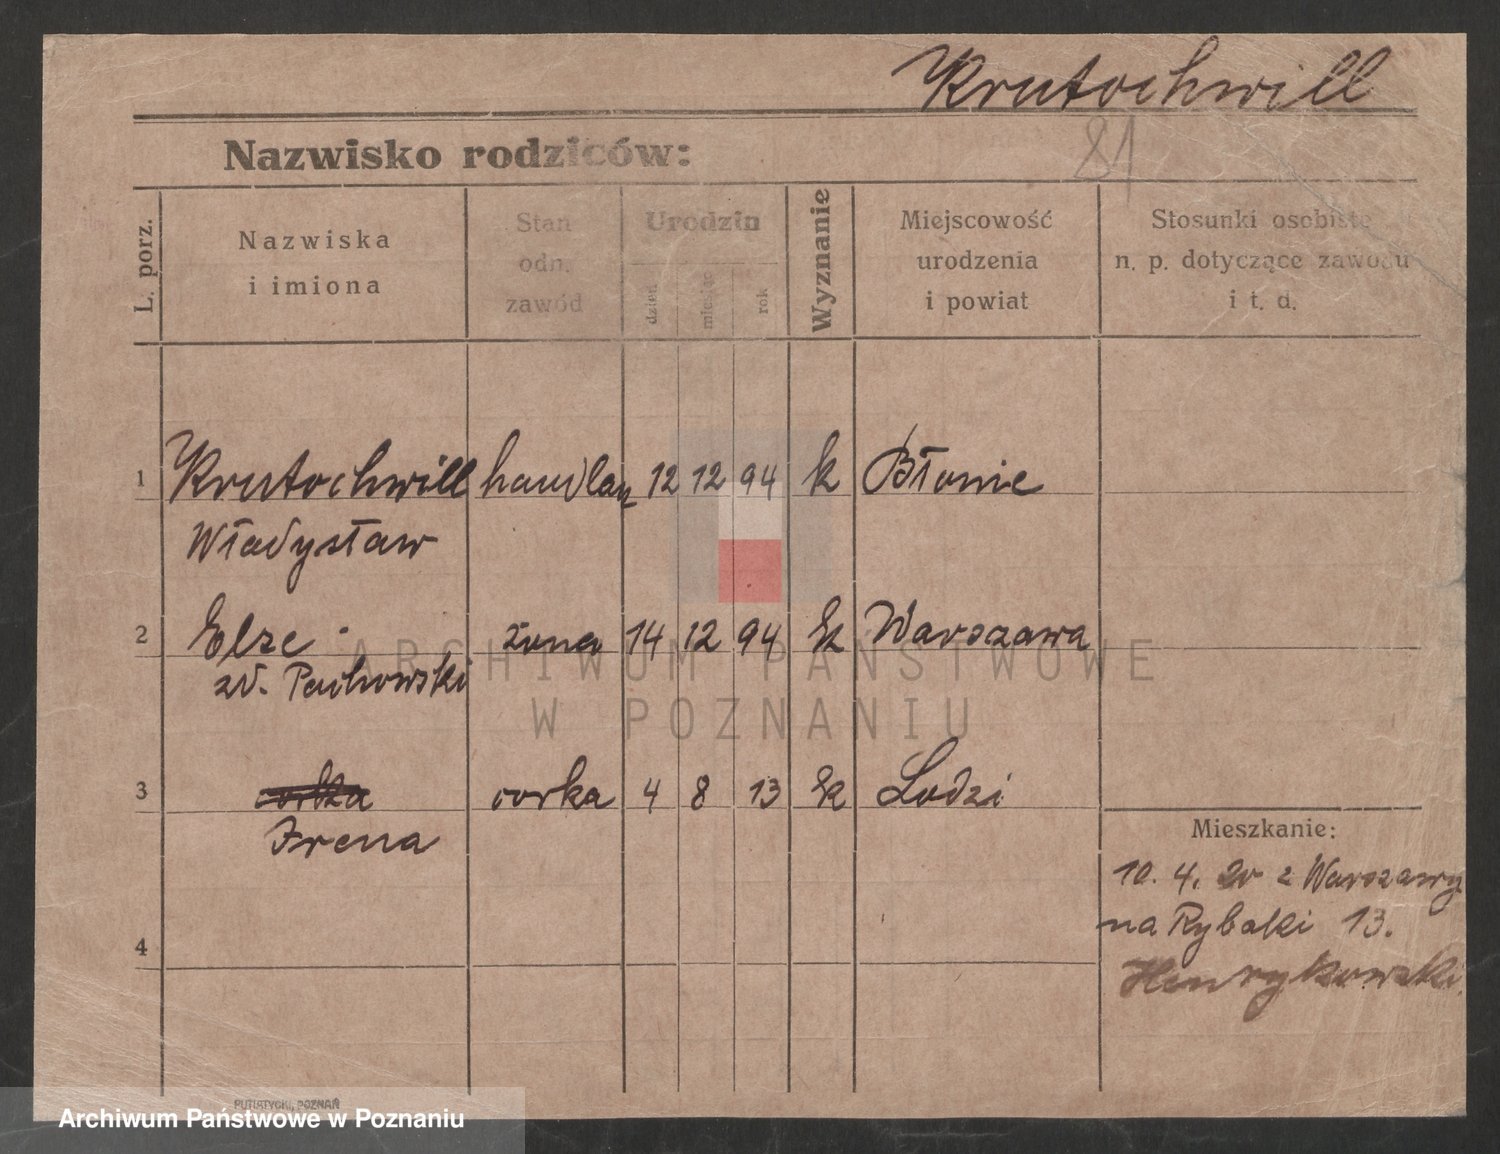 Krutochwill
81
Nazwisko rodziców:
L. porz.
Nazwiska
i imiona
Stan
odn.
zawód
Urodzin
dzień
miesiąc
rok
Wyznanie
Miejscowość
urodzenia
i powiat
Stosunki osobiste
n. p. dotyczące zawodu
i t. d.
1 Krutochwill handlarz 12 12 94 k Błonie
Władysław
2 Elze żona 14 12 94 k Warszawa
zd. Pachowski
3 corka corka 4 8 13 k Lodzi
Irena
Mieszkanie:
10. 4. 20 z Warszawy
na Rybaki 13.
Henrykowski.
4
ARCHIWUM PAŃSTWOWE
W POZNANIU
PUTIATYCKI, POZNAŃ
Archiwum Państwowe w Poznaniu